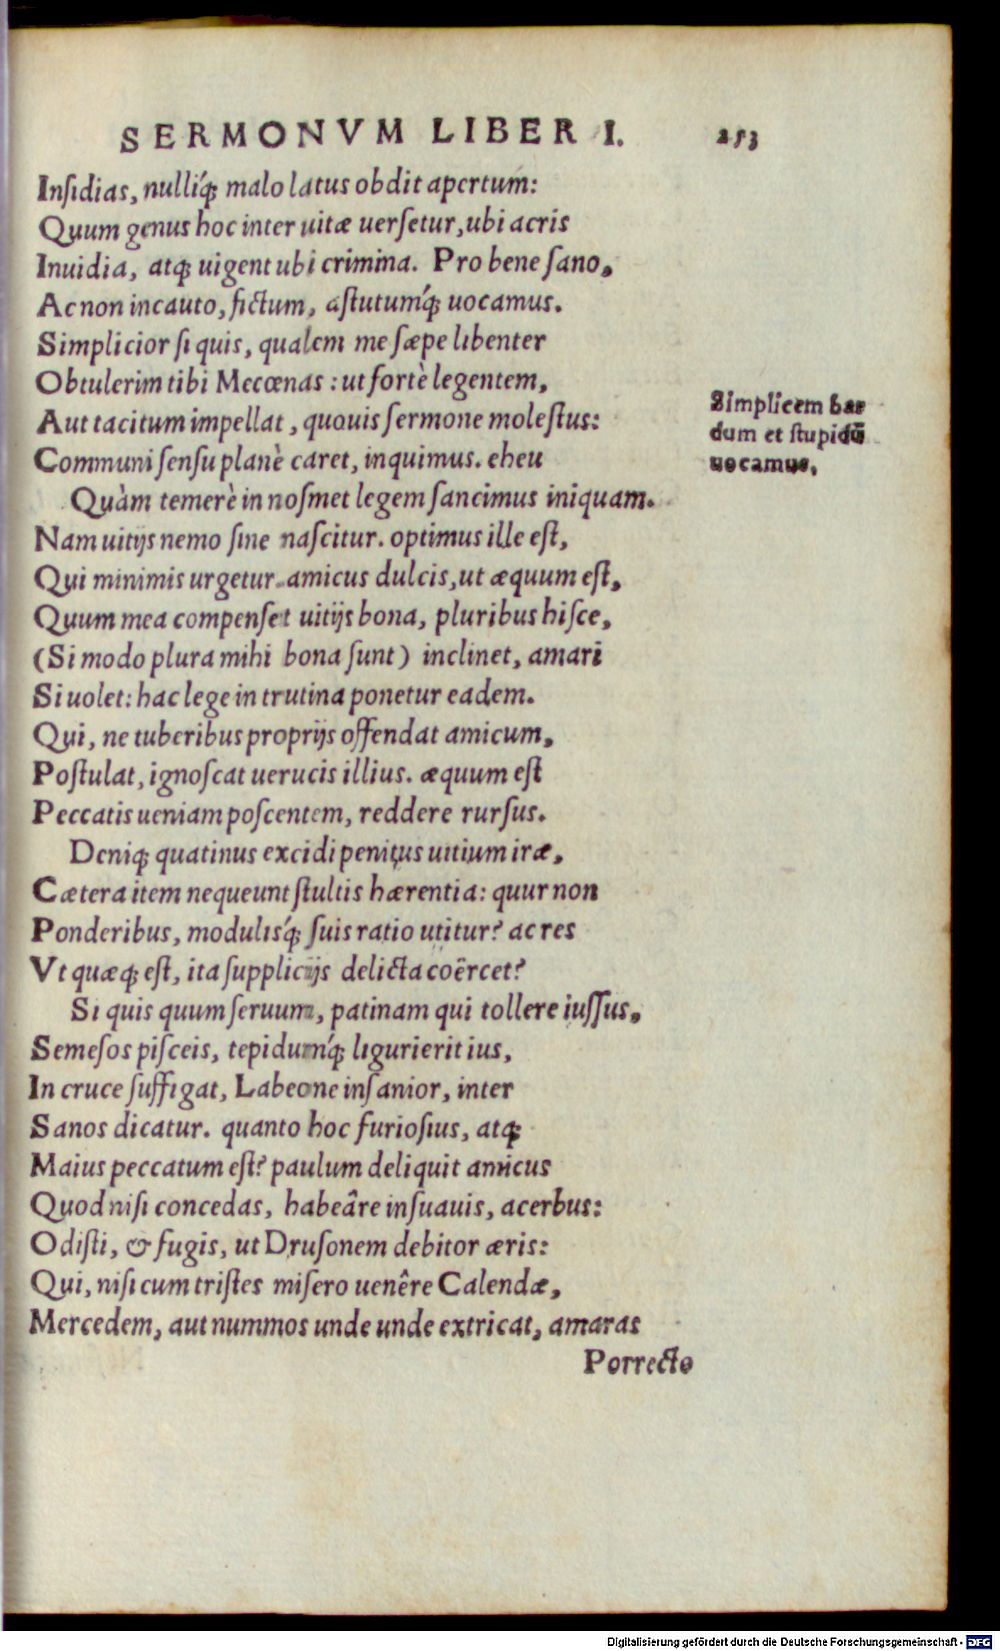 SERMONVM LIBER I. 253
Insidias, nulliq́; malo latus obdit apertum:
Quum genus hoc inter uitæ uersetur, ubi acris
Inuidia, atq; uigent ubi crimina. Pro bene sano,
Ac non incauto, fictum, astutumq́; uocamus.
Simplicior si quis, qualem me sæpe libenter
Obtulerim tibi Mecœnas: ut fortè legentem,
Aut tacitum impellat, quouis sermone molestus:
Communi sensu planè caret, inquimus. eheu
Quàm temerè in nosmet legem sancimus iniquam.
Nam uitijs nemo sine nascitur. optimus ille est,
Qui minimis urgetur. amicus dulcis, ut æquum est,
Quum mea compenset uitijs bona, pluribus hisce,
(Si modo plura mihi bona sunt) inclinet, amari
Si uolet: hac lege in trutina ponetur eadem.
Qui, ne tuberibus proprijs offendat amicum,
Postulat, ignoscat uerucis illius. æquum est
Peccatis ueniam poscentem, reddere rursus.
Deniq; quatinus excidi penitus uitium iræ,
Cætera item nequeunt stultis hærentia: quur non
Ponderibus, modulisq́; suis ratio utitur? ac res
Vt quæq; est, ita supplicijs delicta coërcet?
Si quis quum seruum, patinam qui tollere iussus,
Semesos pisceis, tepidumq́; ligurierit ius,
In cruce suffigat, Labeone insanior, inter
Sanos dicatur. quanto hoc furiosius, atq;
Maius peccatum est? paulum deliquit amicus
Quod nisi concedas, habeâre insuauis, acerbus:
Odisti, & fugis, ut Drusonem debitor æris:
Qui, nisi cum tristes misero uenêre Calendæ,
Mercedem, aut nummos unde unde extricat, amaras
Porrecto
Simplicem bar
dum et stupidū
uocamus.
Digitalisierung gefördert durch die Deutsche Forschungsgemeinschaft - DFG